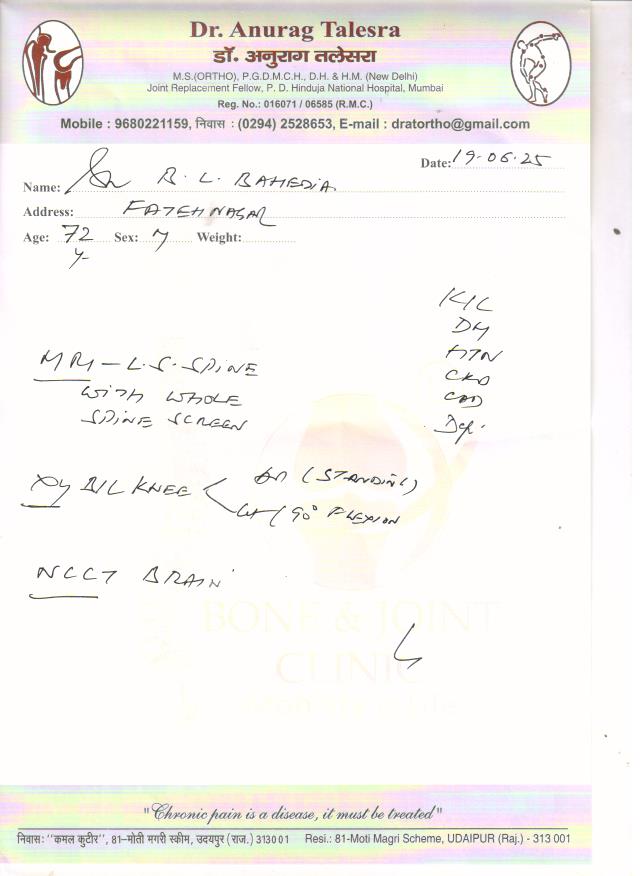 Dr. Anurag Talesra
डॉ. अनुराग तलेसरा
M.S.(ORTHO), P.G.D.M.C.H., D.H. & H.M. (New Delhi)
Joint Replacement Fellow, P. D. Hinduja National Hospital, Mumbai
Reg. No.: 016071 / 06585 (R.M.C.)
Mobile : 9680221159, निवास : (0294) 2528653, E-mail : dratortho@gmail.com
Date: 19.06.25
Name: B. L. BAHEDIA
Address: FATEHNAGAR
Age: 72 y Sex: M Weight:
K/C
DM
HTN
CKD
CAD
MRI - L.S. SPINE
WITH WHOLE
SPINE SCREEN
B/L KNEE
(STANDING)
90° FLEXION
NCCT BRAIN
BONE & JOINT
CLINIC
"Chronic pain is a disease, it must be treated"
निवास: ''कमल कुटीर'', 81–मोती मगरी स्कीम, उदयपुर (राज.) 313001 Resi.: 81-Moti Magri Scheme, UDAIPUR (Raj.) - 313 001